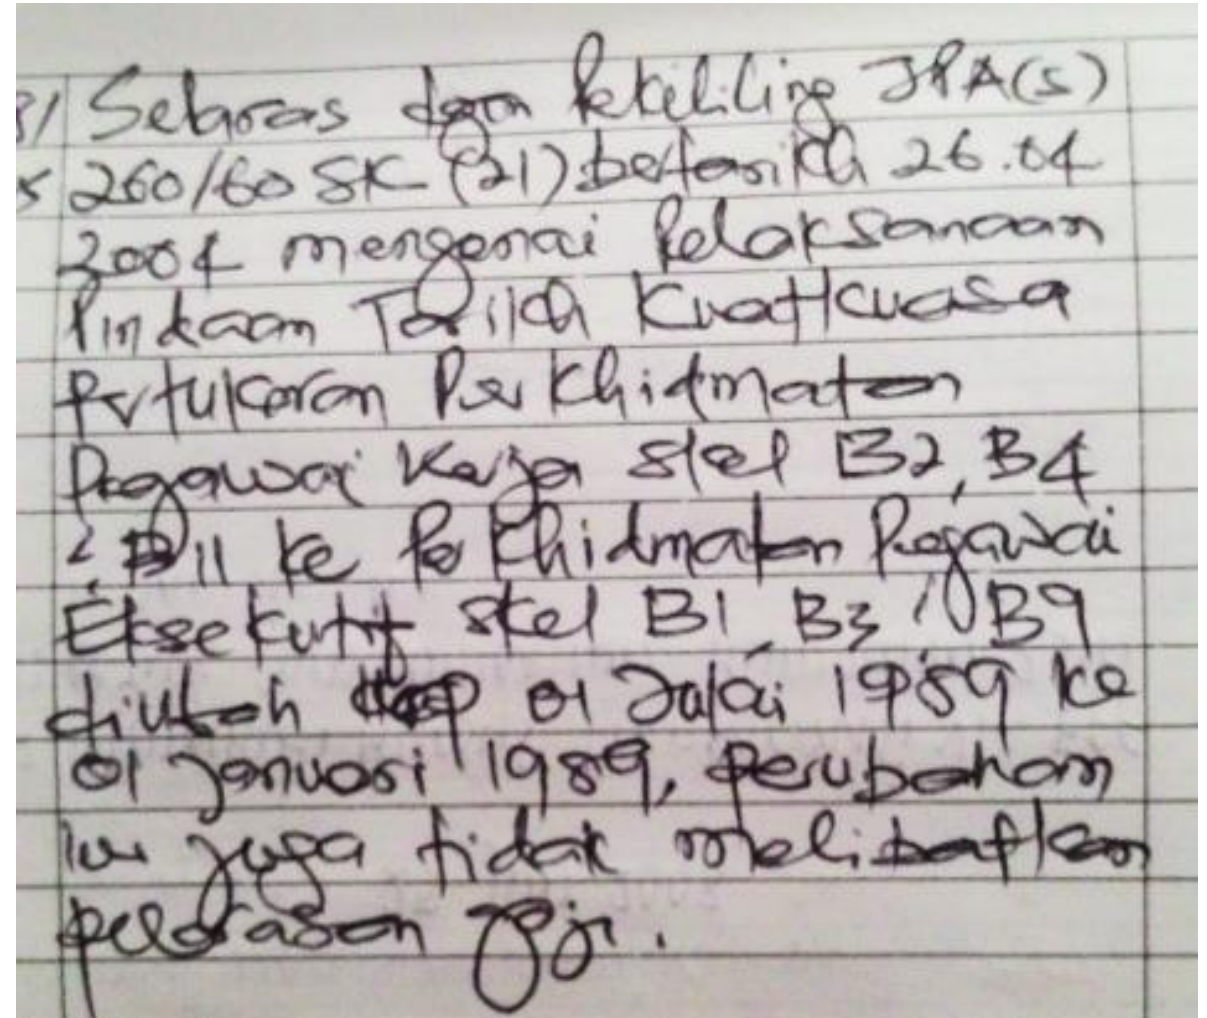 Selaras dgn Pekeliling JPA(S)
260/60 SK (21) bertarikh 26.04
2004 mengenai Pelaksanaan
Pindaan Tarikh Kuatkuasa
Pertukaran Perkhidmatan
Pegawai Kerja skel B2, B4
& B11 ke Perkhidmatan Pegawai
Eksekutif skel B1, B3 B9
diubah 01 Julai 1989 ke
01 Januari 1989, perubahan
ini juga tidak melibatkan
pelarasan gaji.